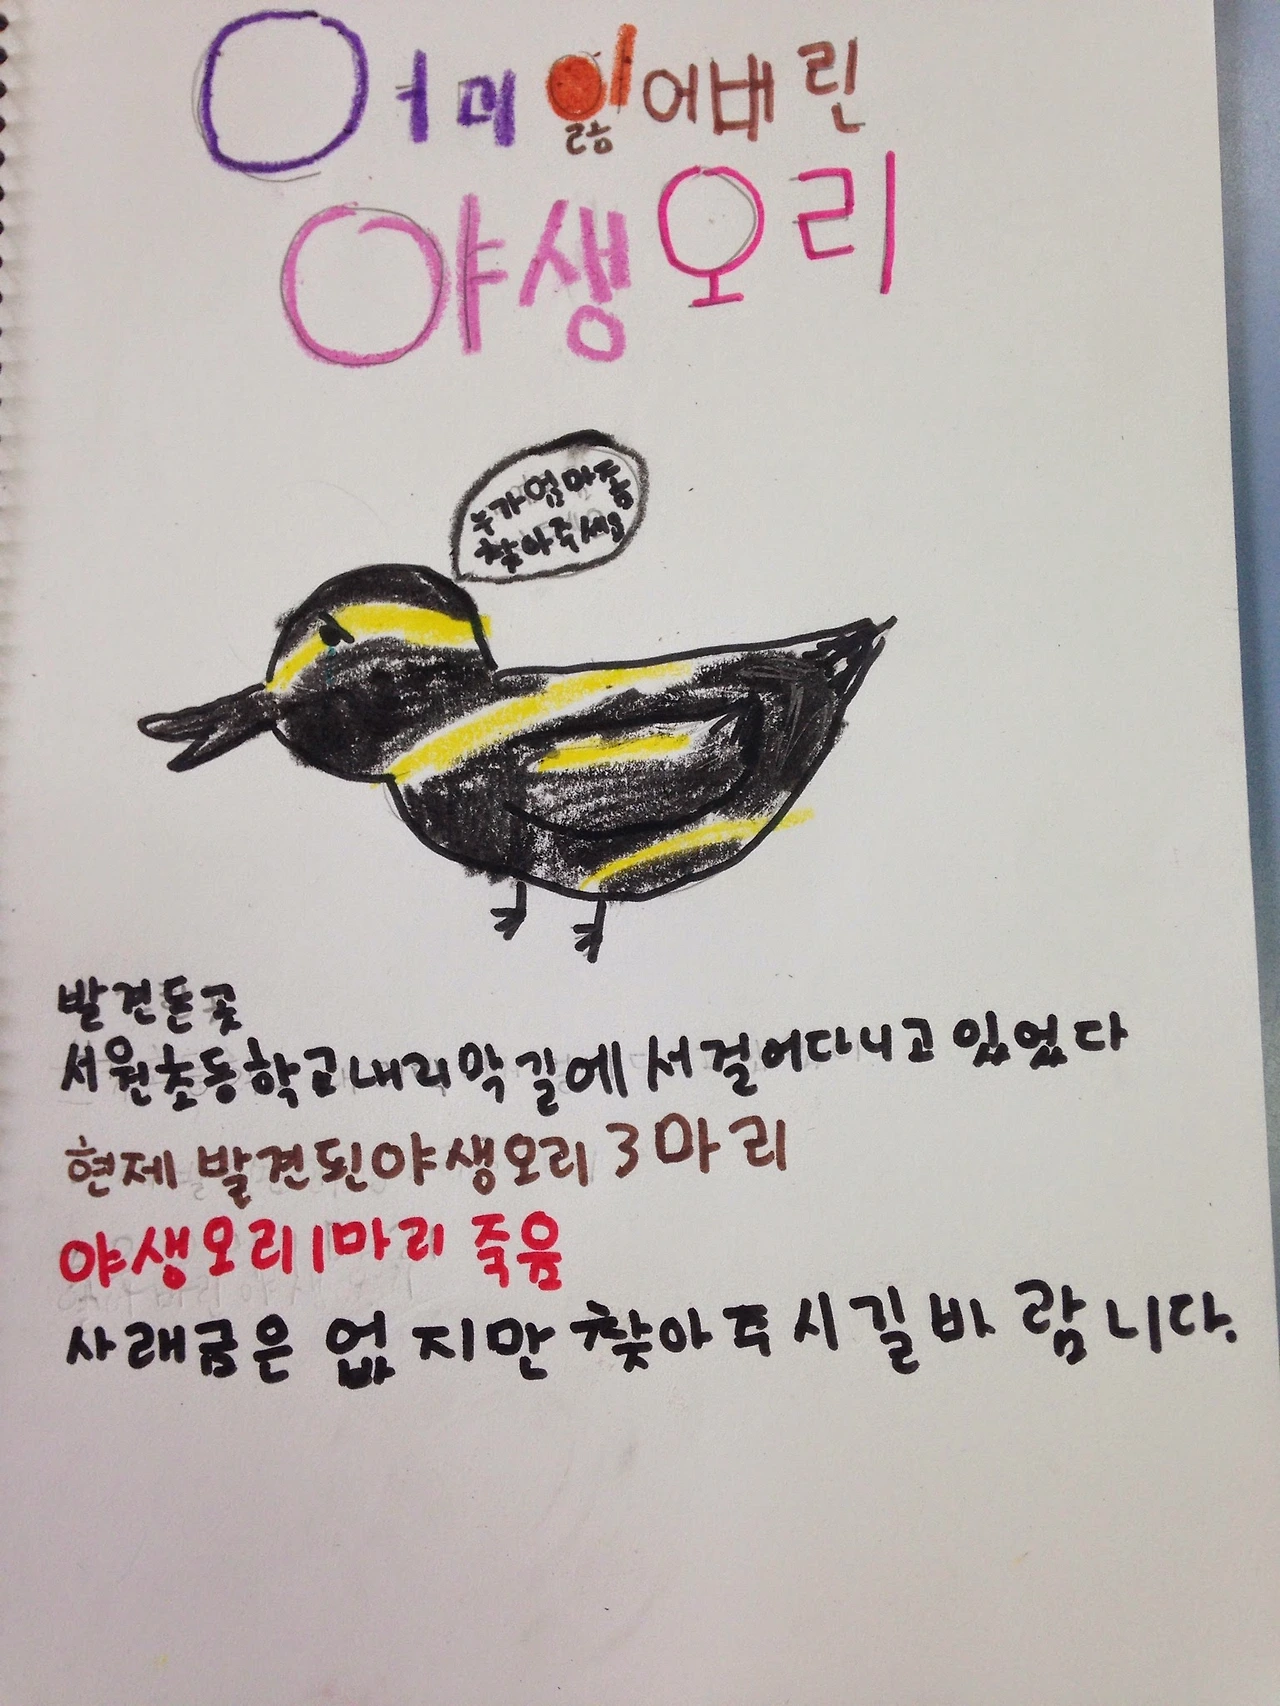 어미 잃어배린
야생오리
누가엄마좀
찾아주세요
발견돈곳
서원초등학교내리막길에서걸어다니고 있었다
현제 발견된야생오리 3마리
야생오리1마리 죽음
사래금은 없지만 찾아주시길바람니다.